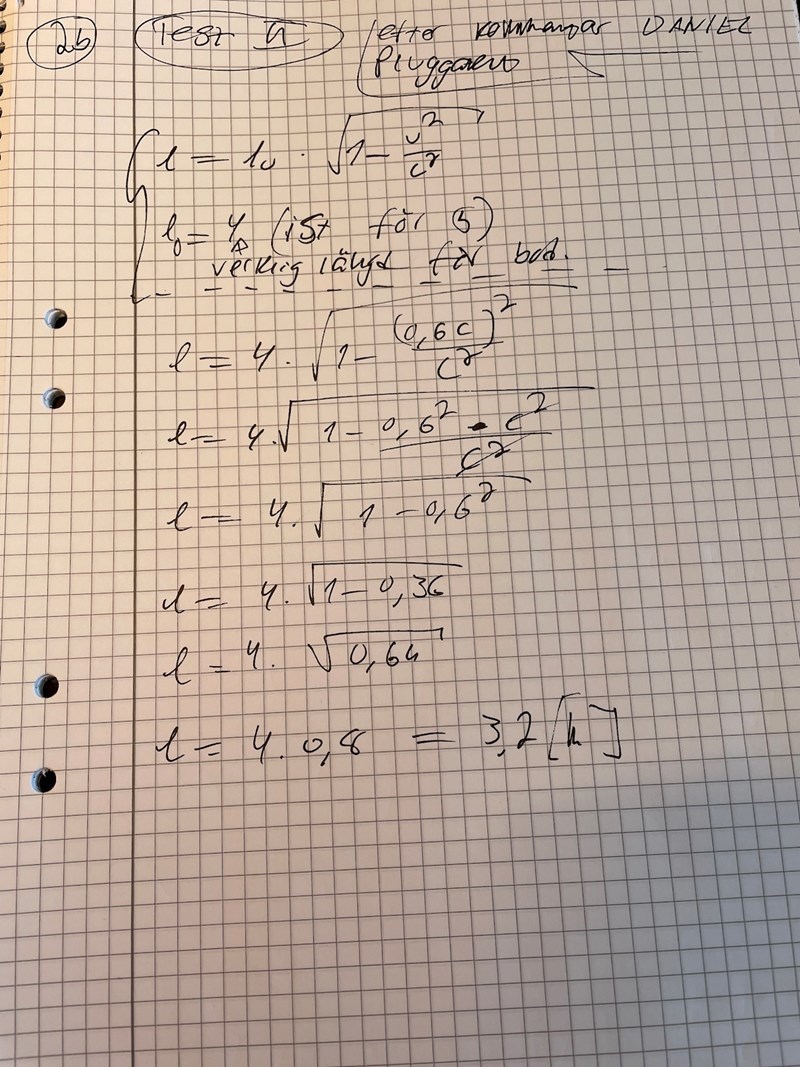 2b Test II efter kommentar DANIEL
Pluggaren
l = l₀ · √(1 - v²/c²)
l₀ = 4 (ist för 5)
verklig längd för bod.
l = 4 · √(1 - (0,6c)²/c²)
l = 4 · √(1 - 0,6² · c²/c²)
l = 4 · √(1 - 0,6²)
l = 4 · √(1 - 0,36)
l = 4 · √0,64
l = 4 · 0,8 = 3,2 [m]